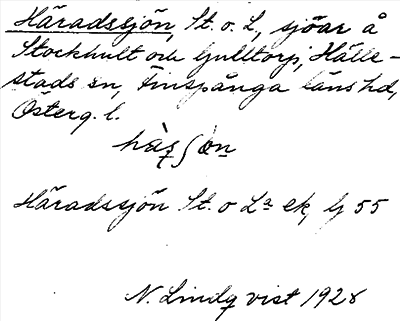 Häradssjön, St. o. L, sjöar å
Stockhult och Gulltorp, Hälle-
stads sn, Finspånga läns hd,
Österg. l.
Häradssjön St. o La ek, bj 55
N. Lindqvist 1928